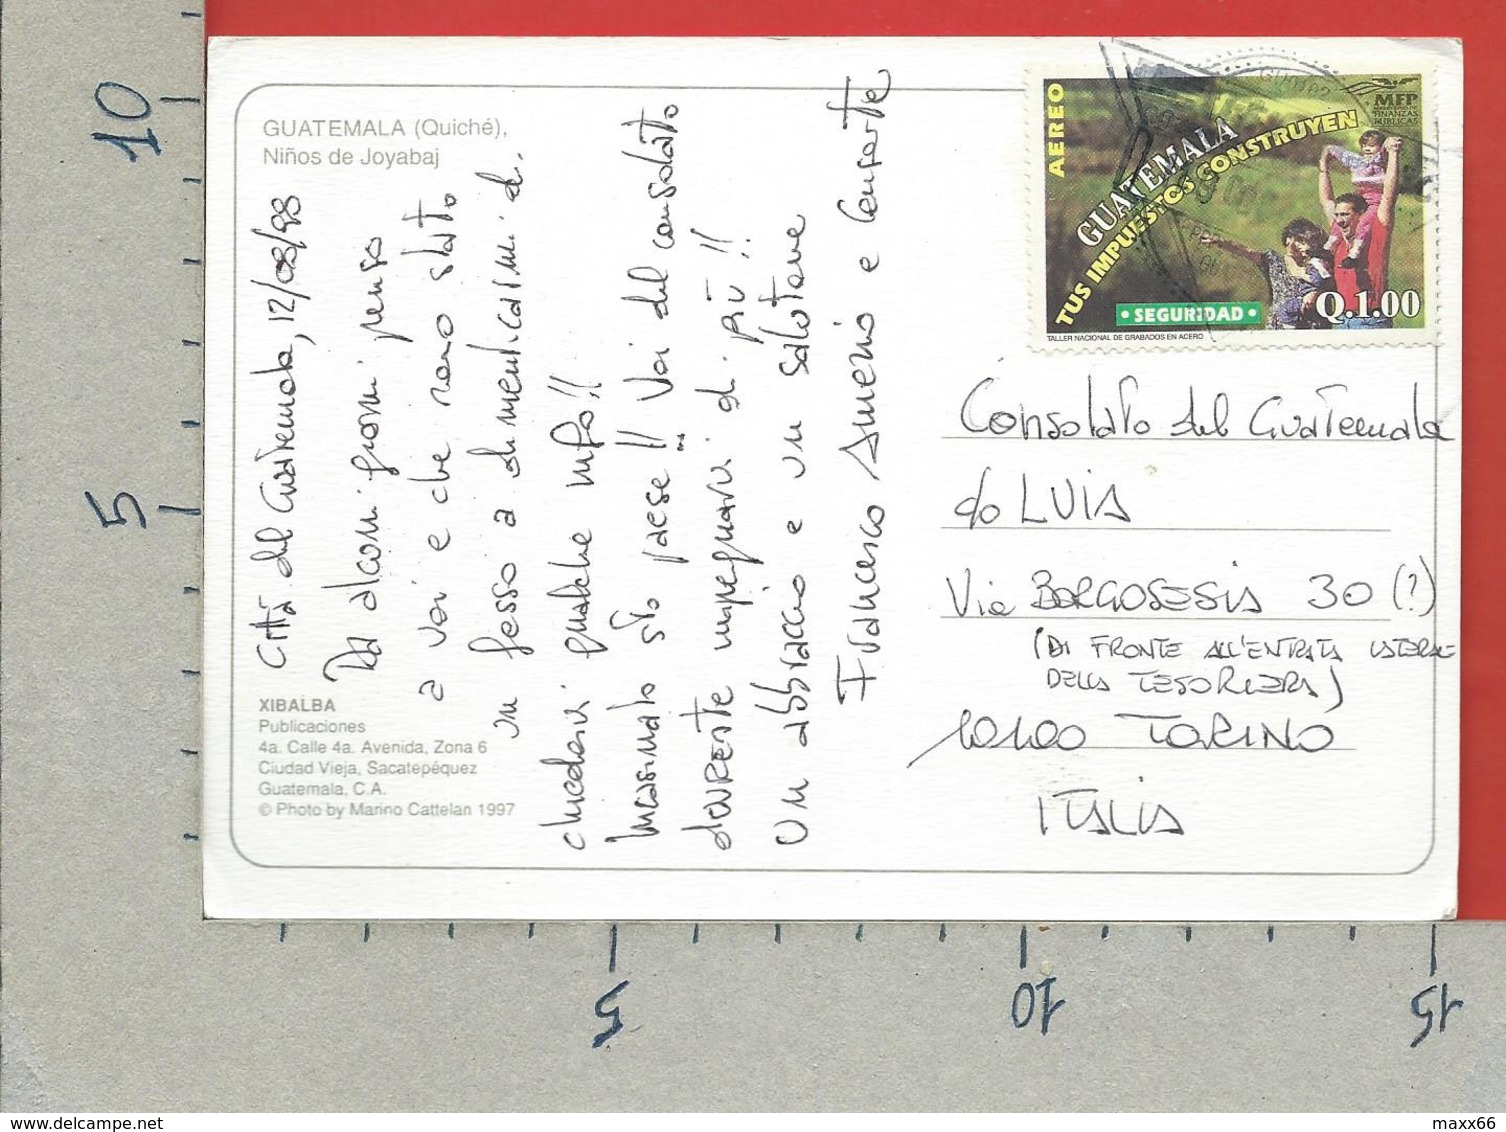 GUATEMALA (Quiché),
Niños de Joyabaj
XIBALBA
Publicaciones
4a. Calle 4a. Avenida, Zona 6
Ciudad Vieja, Sacatepéquez
Guatemala, C.A.
© Photo by Marino Cattelan 1997
Città del Guatemala, 12/08/98
Da alcuni giorni penso
a voi e che sono stato
un fesso a dimenticarmi di
chiedervi qualche info!!
Incasinato sto paese!! Voi del consolato
dovreste impegnarvi di più!!
Un abbraccio e un salutone
Francesco Amerio e Consorte
AEREO
GUATEMALA
TUS IMPUESTOS CONSTRUYEN
MFP
MINISTERIO DE
FINANZAS
PUBLICAS
• SEGURIDAD •
Q.1.00
TALLER NACIONAL DE GRABADOS EN ACERO
Consolato del Guatemala
c/o LUIS
Via BORGOSESIA 30 (?)
(DI FRONTE ALL'ENTRATA LATERALE
DELLA TESORIERA)
10100 TORINO
ITALIA
10
5
5
10
15
delcampe.net
maxx66